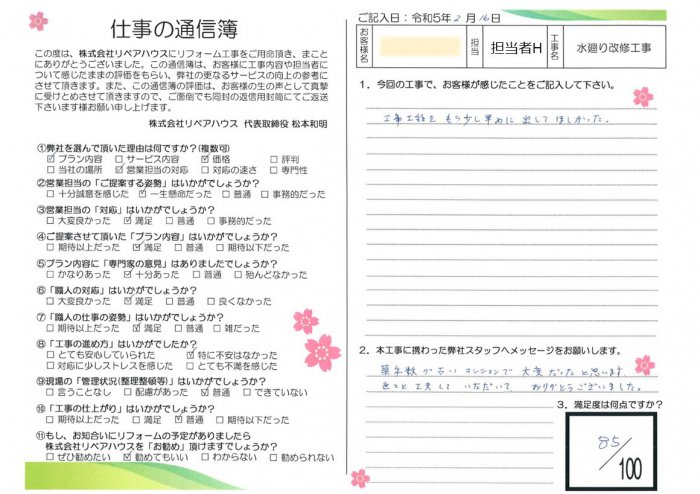 仕事の通信簿
この度は、株式会社リペアハウスにリフォーム工事をご用命頂き、まこと
にありがとうございました。この通信簿は、お客様に工事内容や担当者に
ついて感じたままの評価をもらい、弊社の更なるサービスの向上の参考に
させて頂きます。また、この通信簿の評価は、お客様の生の声として真摯
に受けとめさせて頂きますので、ご面倒でも同封の返信用封筒にてご返送
下さいます様お願い申し上げます。
株式会社リペアハウス 代表取締役 松本和明
①弊社を選んで頂いた理由は何ですか?(複数可)
☑ プラン内容 □ サービス内容 ☑ 価格 □ 評判
□ 当社の場所 ☑ 営業担当の対応 □ 対応の速さ □ 専門性
②営業担当の「ご提案する姿勢」はいかがでしょうか?
□ 十分誠意を感じた ☑ 一生懸命だった □ 普通 □ 事務的だった
③営業担当の「対応」はいかがでしょうか?
□ 大変良かった ☑ 満足 □ 普通 □ 事務的だった
④ご提案させて頂いた「プラン内容」はいかがでしょうか?
□ 期待以上だった ☑ 満足 □ 普通 □ 期待以下だった
⑤プラン内容に「専門家の意見」はありましたでしょうか?
□ かなりあった ☑ 十分あった □ 普通 □ 殆んどなかった
⑥「職人の対応」はいかがでしょうか?
□ 大変良かった ☑ 満足 □ 普通 □ 良くなかった
⑦「職人の仕事の姿勢」はいかがでしょうか?
□ 期待以上だった ☑ 満足 □ 普通 □ 雑だった
⑧「工事の進め方」はいかがでしたか?
□ とても安心していられた ☑ 特に不安はなかった
□ 対応に少しストレスを感じた □ とても不満を感じた
⑨現場の「管理状況(整理整頓等)」はいかがでしょうか?
□ 言うことなし □ 配慮があった ☑ 普通 □ できていない
⑩「工事の仕上がり」はいかがでしょうか?
□ 期待以上だった □ 満足 ☑ 普通 □ 期待以下だった
⑪もし、お知合いにリフォームの予定がありましたら
株式会社リペアハウスを「お勧め」頂けますでしょうか?
□ ぜひ勧めたい ☑ 勧めてもいい □ わからない □ 勧められない
ご記入日：令和5年2月16日
お客様名
担当
担当者H
工事名
水廻り改修工事
1．今回の工事で、お客様が感じたことをご記入して下さい。
工事工程をもう少し早めに出してほしかった。
2．本工事に携わった弊社スタッフへメッセージをお願いします。
築年数が古いマンションで大変だったと思います
色々と工夫していただいてありがとうございました。
3．満足度は何点ですか?
85
/100